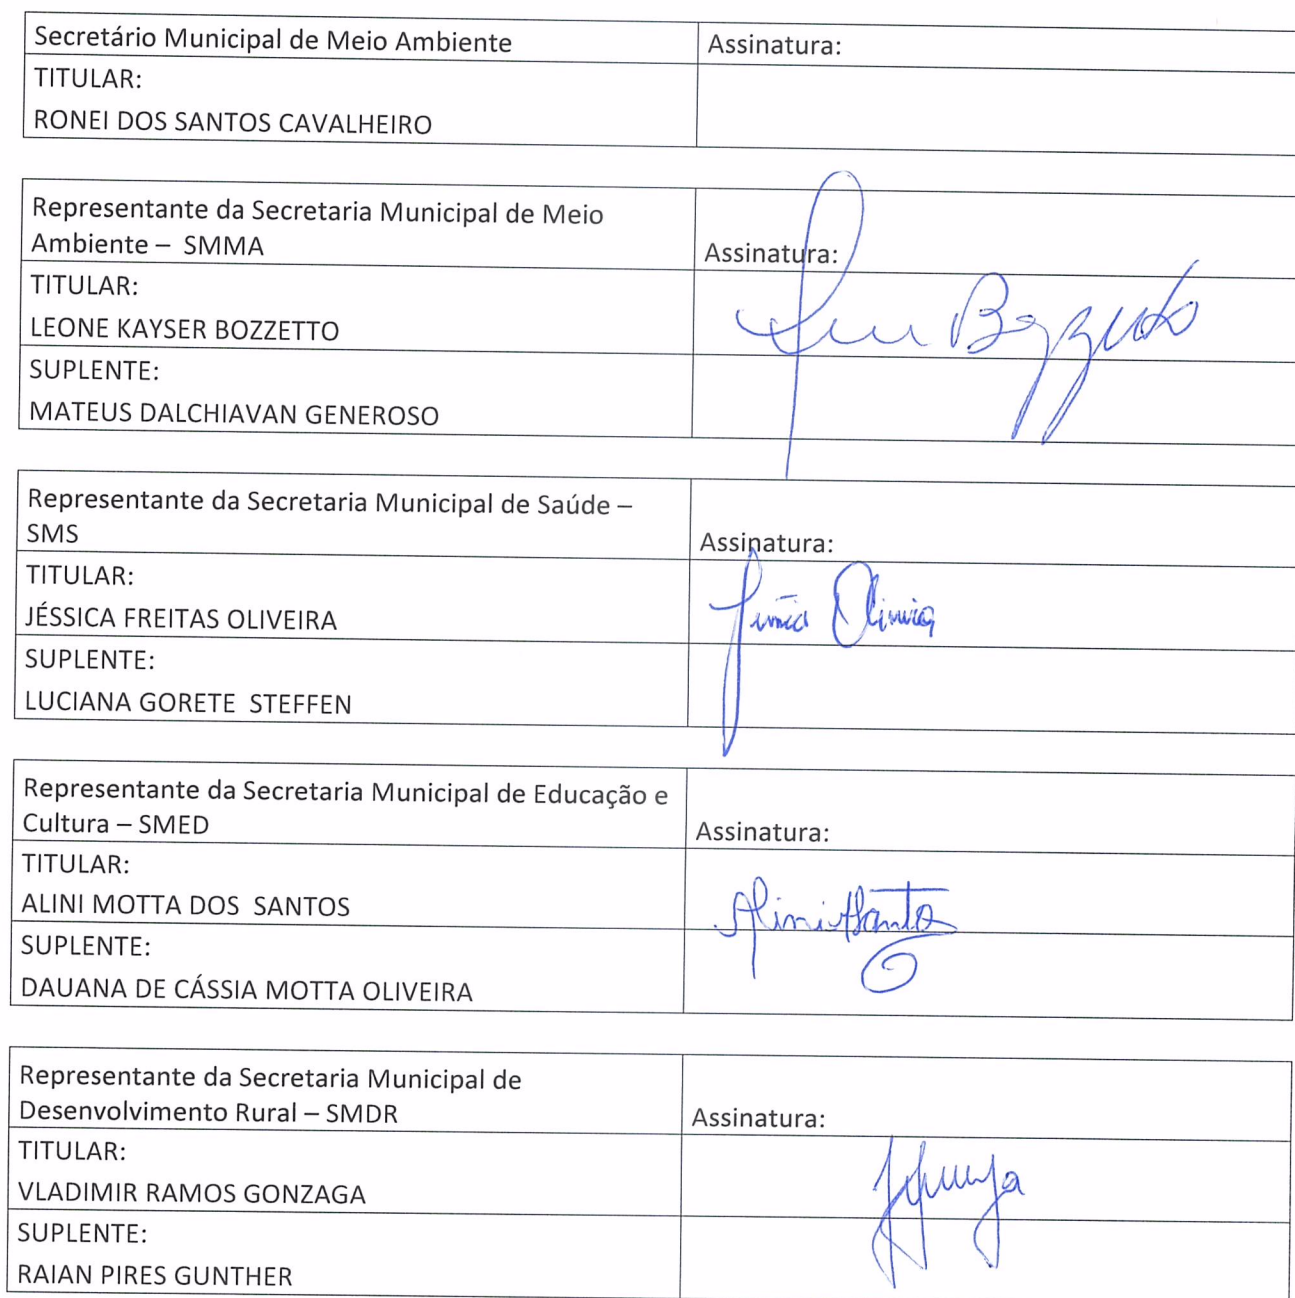 Secretário Municipal de Meio Ambiente
Assinatura:
TITULAR:
RONEI DOS SANTOS CAVALHEIRO
Representante da Secretaria Municipal de Meio
Ambiente – SMMA
Assinatura:
TITULAR:
LEONE KAYSER BOZZETTO
Bozzetto
SUPLENTE:
MATEUS DALCHIAVAN GENEROSO
Representante da Secretaria Municipal de Saúde –
SMS
Assinatura:
TITULAR:
JÉSSICA FREITAS OLIVEIRA
Oliveira
SUPLENTE:
LUCIANA GORETE STEFFEN
Representante da Secretaria Municipal de Educação e
Cultura – SMED
Assinatura:
TITULAR:
ALINI MOTTA DOS SANTOS
Alini Santos
SUPLENTE:
DAUANA DE CÁSSIA MOTTA OLIVEIRA
Representante da Secretaria Municipal de
Desenvolvimento Rural – SMDR
Assinatura:
TITULAR:
VLADIMIR RAMOS GONZAGA
SUPLENTE:
RAIAN PIRES GUNTHER